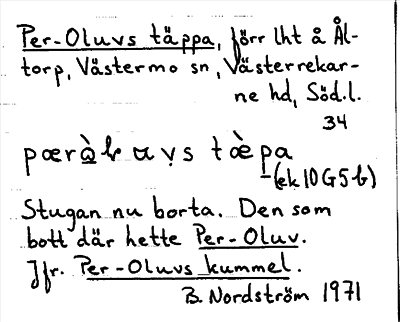 Per-Oluvs täppa, förr lht å Ål-
torp, Västermo sn, Västerrekar-
ne hd, Söd.l.
34
(ek 10 G 5 b)
Stugan nu borta. Den som
bott där hette Per-Oluv.
Jfr. Per-Oluvs kummel.
B. Nordström 1971